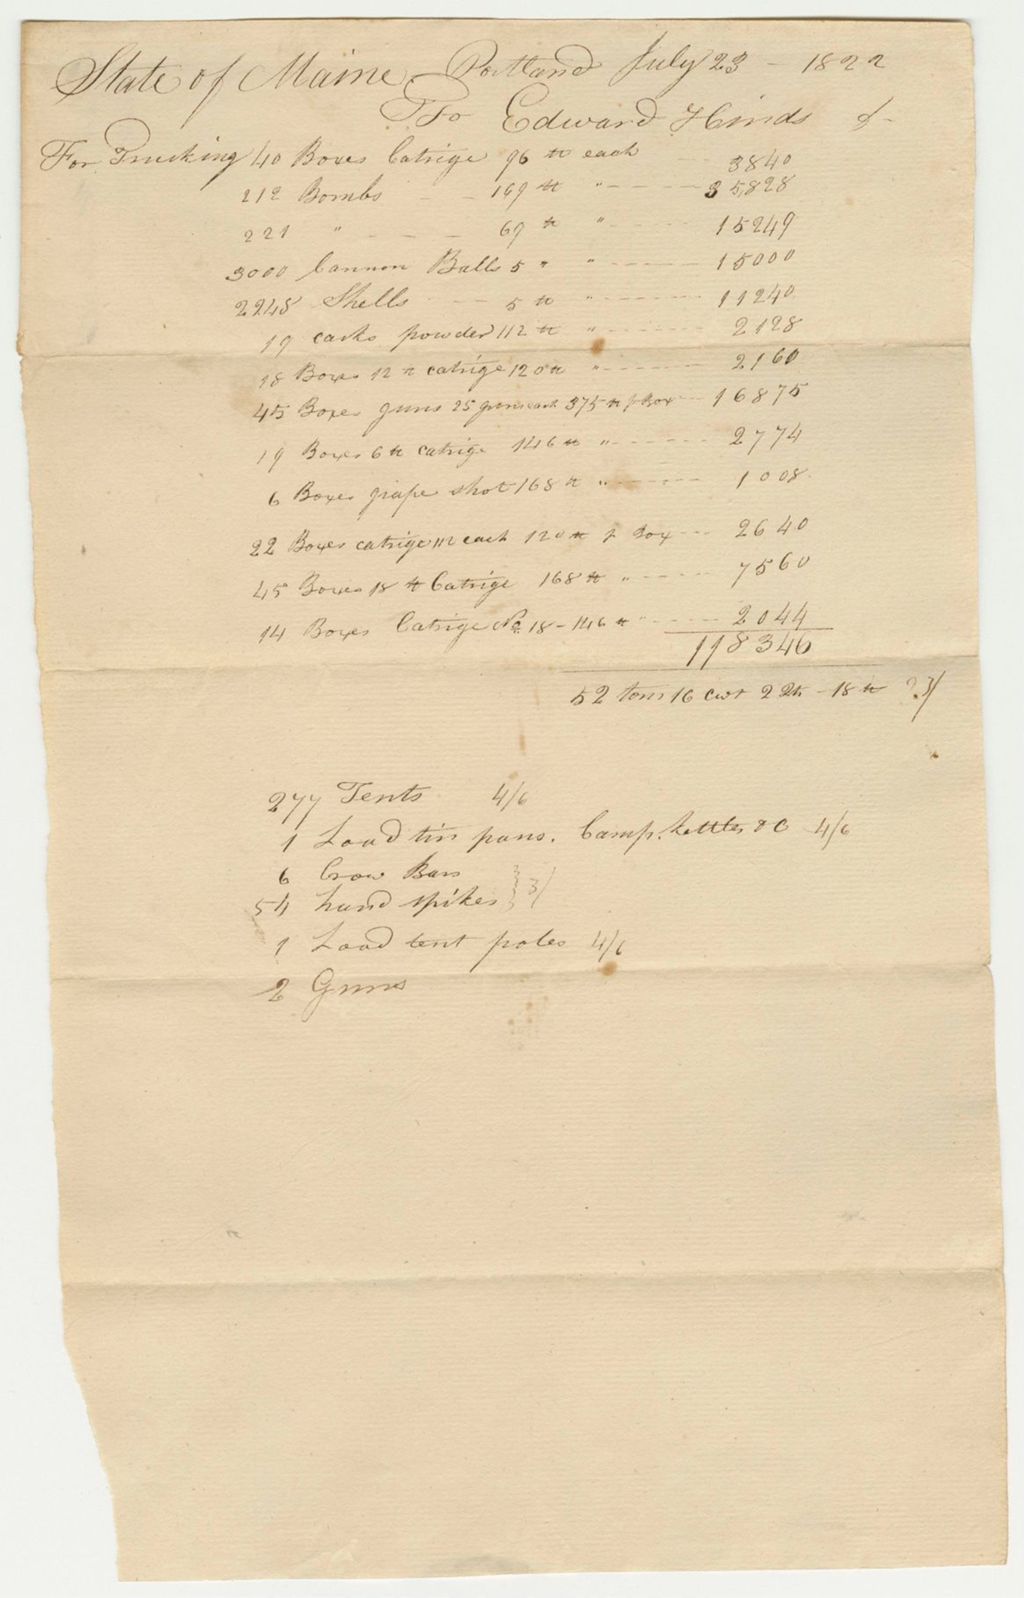 State of Maine Portland July 23 - 1822
To Edward Hinds
For Trucking 40 Boxes Catrige 96 lb each 3840
212 Bombs - - 169 lb " - - - - 35,828
221 " - - - 69 lb " - - - - 15249
3000 Cannon Balls 5 " " - - - - 15000
2248 Shells - - 5 lb " - - - - 11240
19 casks powder 112 lb " - - - - 2128
18 Boxes 12 lb catrige 120 lb " - - - - 2160
45 Boxes guns 25 guns each 375 lb p Box - - 16875
19 Boxes 6 lb catrige 146 lb " - - - - 2774
6 Boxes grape shot 168 lb " - - - - 1008
22 Boxes catrige 112 each 120 lb p Box - - 2640
45 Boxes 18 lb Catrige 168 lb " - - - - 7560
14 Boxes Catrige No 18 - 146 lb " - - - - 2044
118346
52 tons 16 cwt 2 - 18 lb 3/
277 Tents 4/6
1 Load tin pans. Camp. kettles &C 4/6
6 Crow Bars
54 hand spikes } 3/
1 Load tent poles 4/6
2 Guns